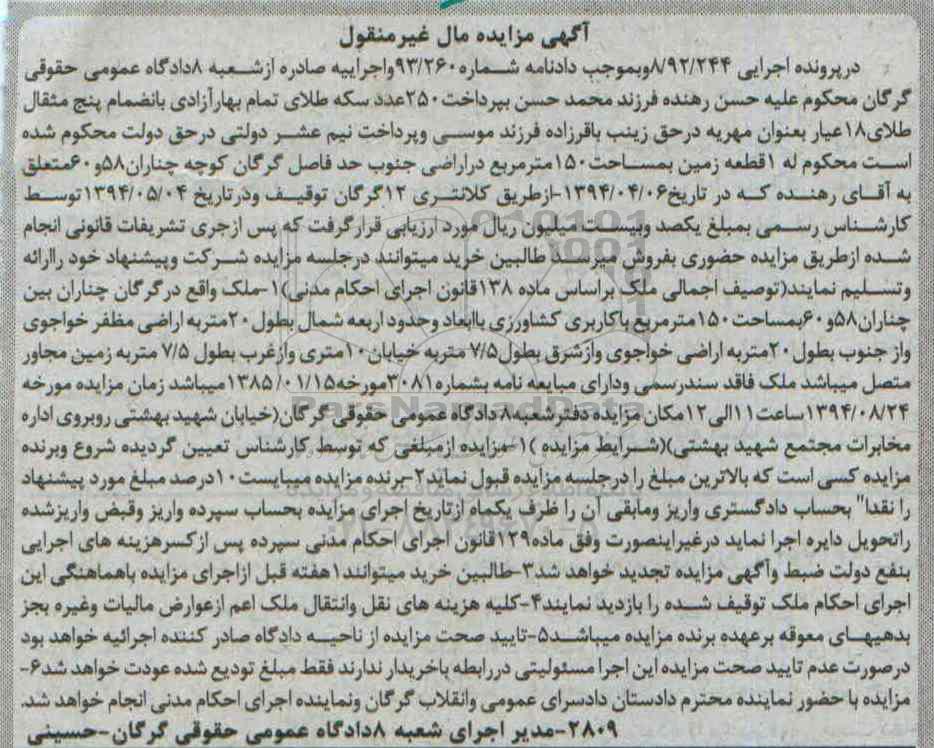 آگهی مزایده مال غیرمنقول
درپرونده اجرایی ۸/۹۲/۲۴۴وبموجب دادنامه شماره۹۳/۲۶۰واجراییه صادره ازشعبه ۸دادگاه عمومی حقوقی
گرگان محکوم علیه حسن رهنده فرزند محمد حسن بپرداخت۲۵۰عدد سکه طلای تمام بهارآزادی بانضمام پنج مثقال
طلای۱۸عیار بعنوان مهریه درحق زینب باقرزاده فرزند موسی وپرداخت نیم عشر دولتی درحق دولت محکوم شده
است محکوم له ۱قطعه زمین بمساحت۱۵۰مترمربع دراراضی جنوب حد فاصل گرگان کوچه چناران۵۸و۶۰متعلق
به آقای رهنده که در تاریخ۱۳۹۴/۰۴/۰۶-ازطریق کلانتری ۱۲گرگان توقیف ودرتاریخ ۱۳۹۴/۰۵/۰۴توسط
کارشناس رسمی بمبلغ یکصد وبیست میلیون ریال مورد ارزیابی قرارگرفت که پس ازجری تشریفات قانونی انجام
شده ازطریق مزایده حضوری بفروش میرسد طالبین خرید میتوانند درجلسه مزایده شرکت وپیشنهاد خود راارائه
وتسلیم نمایند(توصیف اجمالی ملک براساس ماده ۱۳۸قانون اجرای احکام مدنی)۱-ملک واقع درگرگان چناران بین
چناران۵۸و۶۰بمساحت۱۵۰مترمربع باکاربری کشاورزی باابعاد وحدود اربعه شمال بطول۲۰متربه اراضی مظفر خواجوی
واز جنوب بطول۲۰متربه اراضی خواجوی وازشرق بطول۷/۵ متربه خیابان۱۰متری وازغرب بطول ۷/۵ متربه زمین مجاور
متصل میباشد ملک فاقد سندرسمی ودارای مبایعه نامه بشماره۳۰۸۱مورخه۱۳۸۵/۰۱/۱۵میباشد زمان مزایده مورخه
۱۳۹۴/۰۸/۲۴ساعت۱۱الی۱۲مکان مزایده دفترشعبه۸دادگاه عمومی حقوقی گرگان(خیابان شهید بهشتی روبروی اداره
مخابرات مجتمع شهید بهشتی)(شرایط مزایده )۱-مزایده ازمبلغی که توسط کارشناس تعیین گردیده شروع وبرنده
مزایده کسی است که بالاترین مبلغ را درجلسه مزایده قبول نماید۲-برنده مزایده میبایست۱۰درصد مبلغ مورد پیشنهاد
را نقدا" بحساب دادگستری واریز ومابقی آن را ظرف یکماه ازتاریخ اجرای مزایده بحساب سپرده واریز وقبض واریزشده
راتحویل دایره اجرا نماید درغیراینصورت وفق ماده۱۲۹قانون اجرای احکام مدنی سپرده پس ازکسرهزینه های اجرایی
بنفع دولت ضبط وآگهی مزایده تجدید خواهد شد۳-طالبین خرید میتوانند۱هفته قبل ازاجرای مزایده باهماهنگی این
اجرای احکام ملک توقیف شده را بازدید نمایند۴-کلیه هزینه های نقل وانتقال ملک اعم ازعوارض مالیات وغیره بجز
بدهیهای معوقه برعهده برنده مزایده میباشد۵-تایید صحت مزایده از ناحیه دادگاه صادر کننده اجرائیه خواهد بود
درصورت عدم تایید صحت مزایده این اجرا مسئولیتی دررابطه باخریدار ندارند فقط مبلغ تودیع شده عودت خواهد شد۶-
مزایده با حضور نماینده محترم دادستان دادسرای عمومی وانقلاب گرگان ونماینده اجرای احکام مدنی انجام خواهد شد.
۲۸۰۹-مدیر اجرای شعبه ۸دادگاه عمومی حقوقی گرگان-حسینی
ParsNamadData